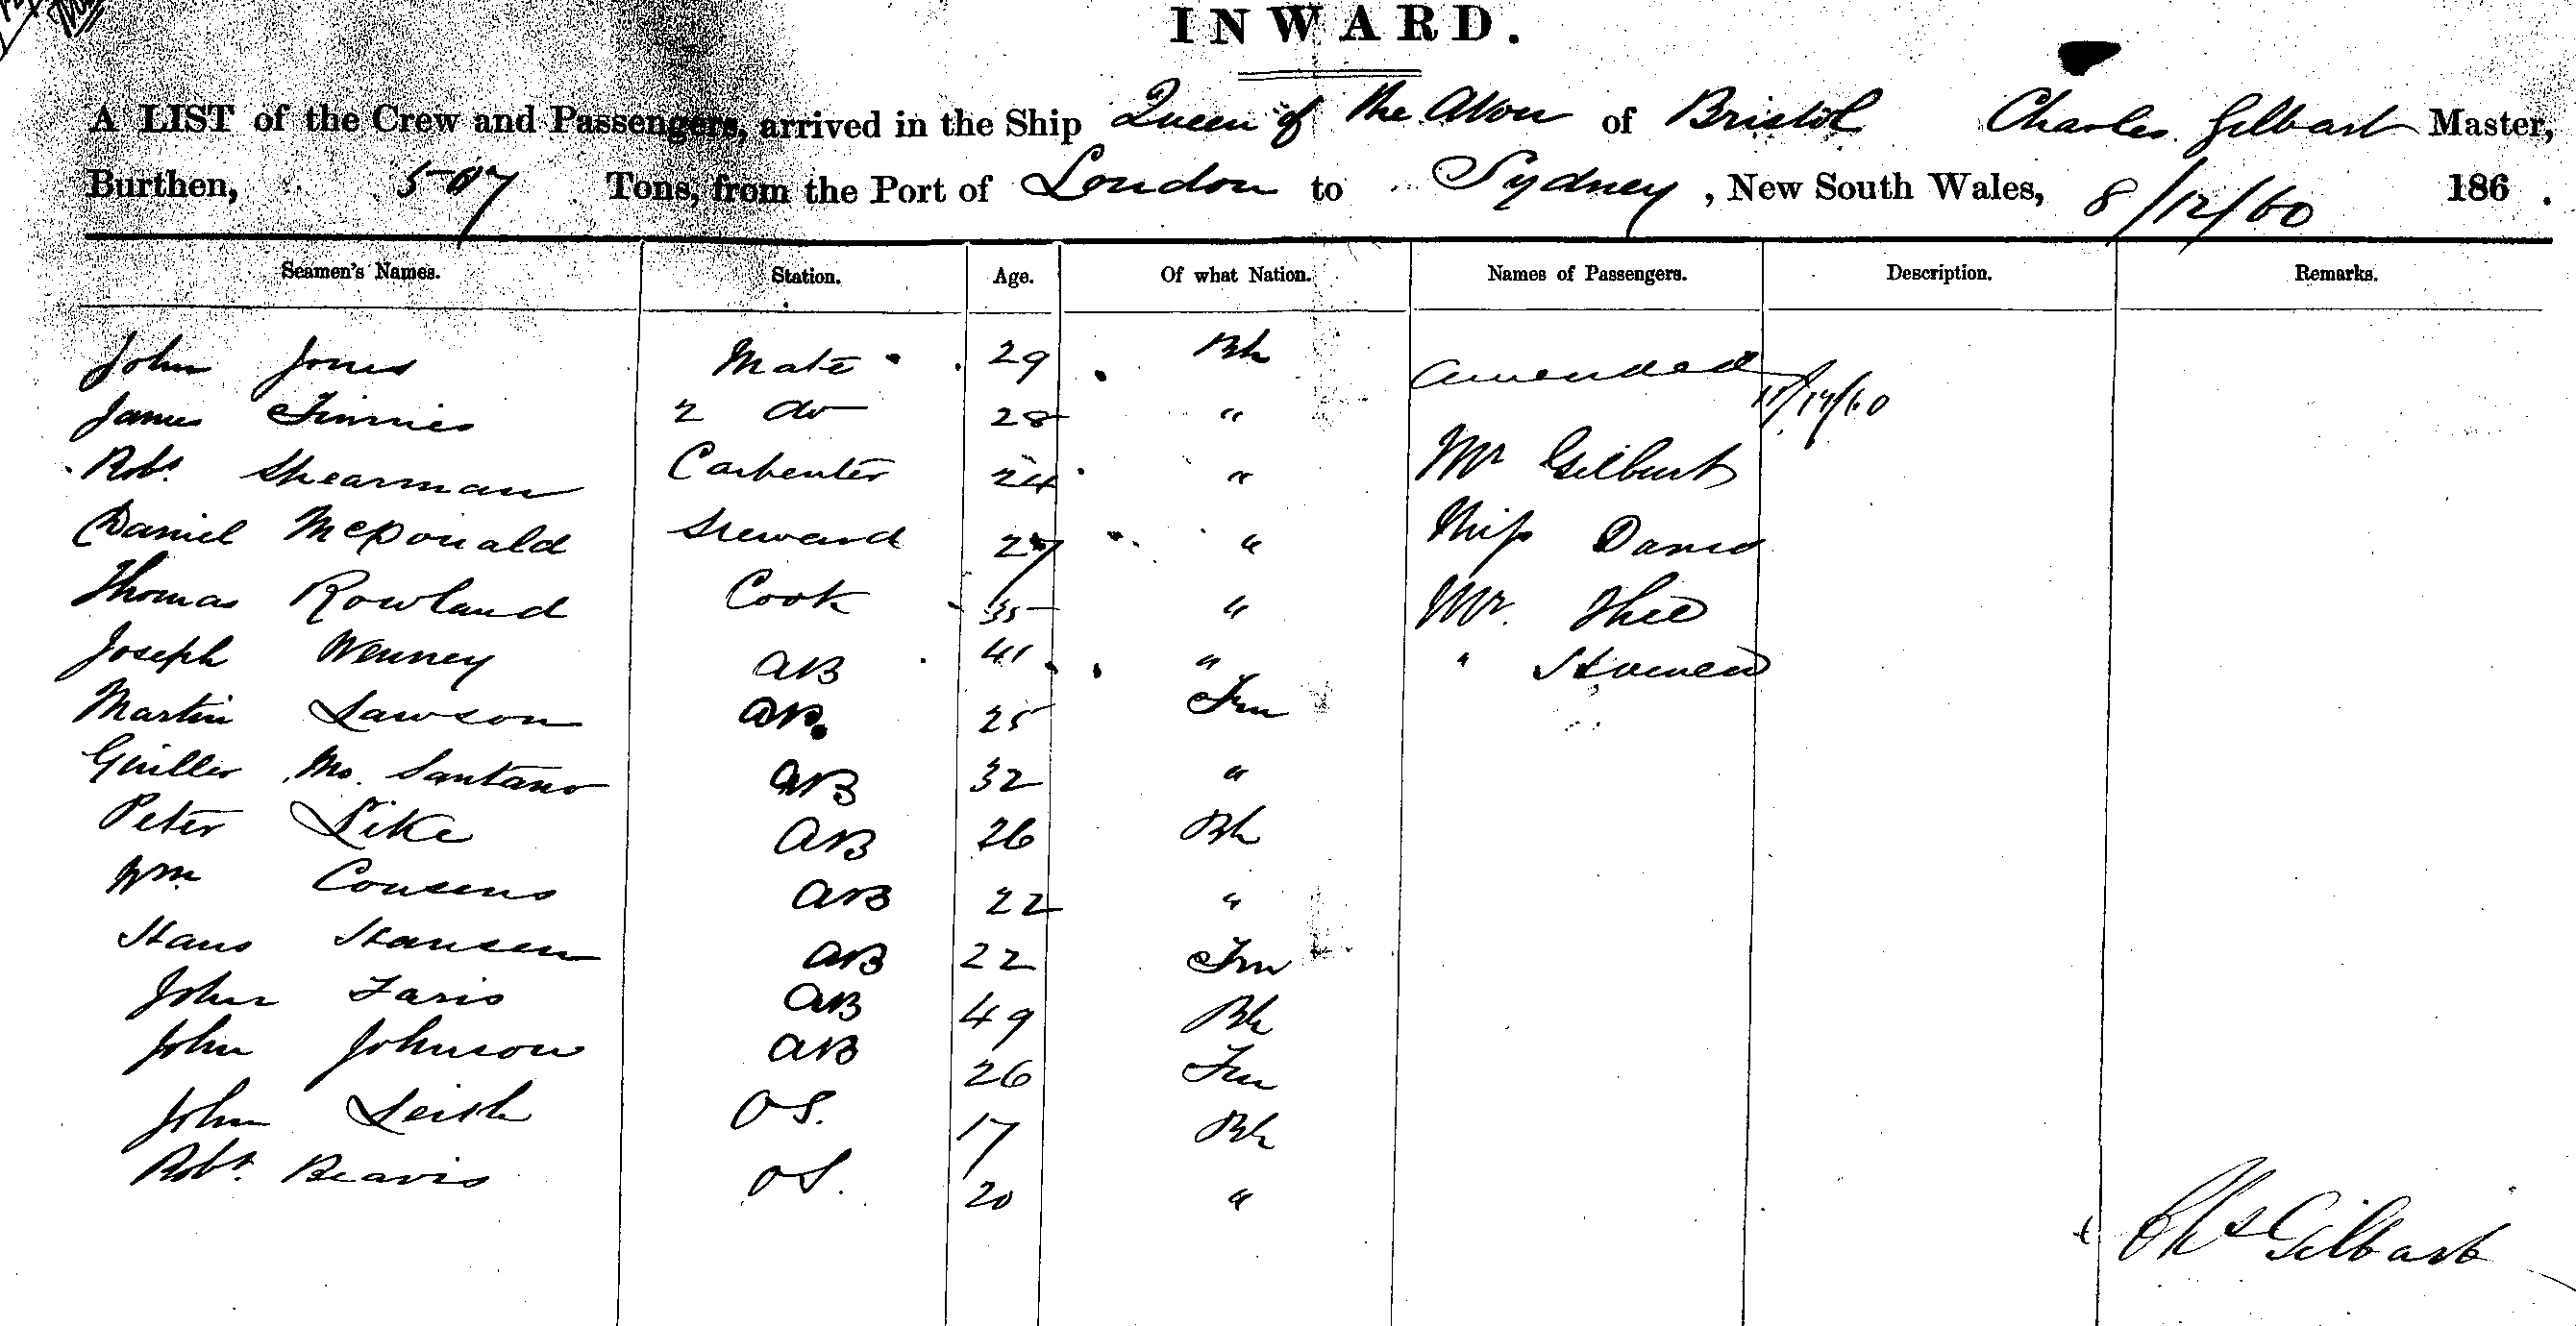 INWARD.
A LIST of the Crew and Passengers, arrived in the Ship Queen of the Avon of Bristol Charles Gilbart Master,
Burthen, 507 Tons, from the Port of London to Sydney, New South Wales, 8/12/60 186 .
Seamen's Names. Station. Age. Of what Nation. Names of Passengers. Description. Remarks.
John Jones Mate 29 Bh amended
James Finnies 2 do 28 "
Robt Shearman Carpenter 24 " Mr Gilbart
Daniel McDonald Steward 27 " Miss
Thomas Rowland Cook 35 " Mr.
Joseph Wenney AB 41 " "
Martin Lawson AB. 25 Frn
Guiller Mo. Santano AB 32 "
Peter Like AB 26 Bh
Wm Cousens AB 22 "
Hans Hansen AB 22 Frn
John Faris AB 49 Bh
John Johnson AB 26 Frn
John Leish OS. 17 Bh
Robt. Beavis OS. 20 "
Chs Gilbart